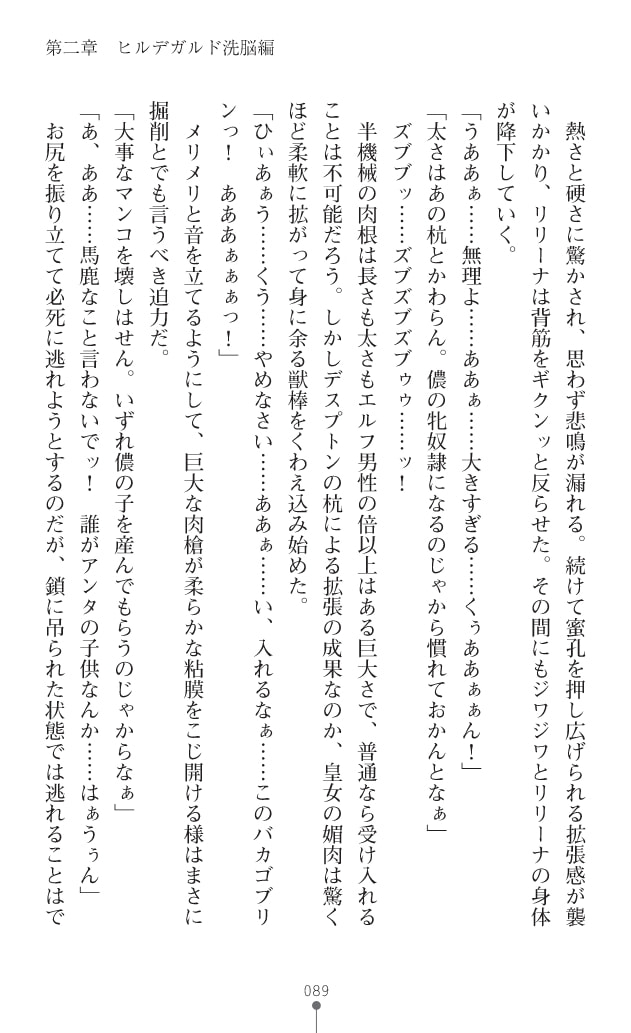 第二章　ヒルデガルド洗脳編
熱さと硬さに驚かされ、思わず悲鳴が漏れる。続けて蜜孔を押し広げられる拡張感が襲
いかかり、リリーナは背筋をギクンッと反らせた。その間にもジワジワとリリーナの身体
が降下していく。
「うああぁ……無理よ……ああぁ……大きすぎる……くぅああぁぁん！」
「太さはあの杭とかわらん。儂の牝奴隷になるのじゃから慣れておかんとなぁ」
ズブブッ……ズブズブズブゥゥ……ッ！
半機械の肉根は長さも太さもエルフ男性の倍以上はある巨大さで、普通なら受け入れる
ことは不可能だろう。しかしデスプトンの杭による拡張の成果なのか、皇女の媚肉は驚く
ほど柔軟に拡がって身に余る獣棒をくわえ込み始めた。
「ひぃあぁう……くう……やめなさい……ああぁ……い、入れるなぁ……このバカゴブリ
ンっ！　あああぁぁぁっ！」
メリメリと音を立てるようにして、巨大な肉槍が柔らかな粘膜をこじ開ける様はまさに
掘削とでも言うべき迫力だ。
「大事なマンコを壊しはせん。いずれ儂の子を産んでもらうのじゃからなぁ」
「あ、ああ……馬鹿なこと言わないでッ！　誰がアンタの子供なんか……はぁうぅん」
お尻を振り立てて必死に逃れようとするのだが、鎖に吊られた状態では逃れることはで
089